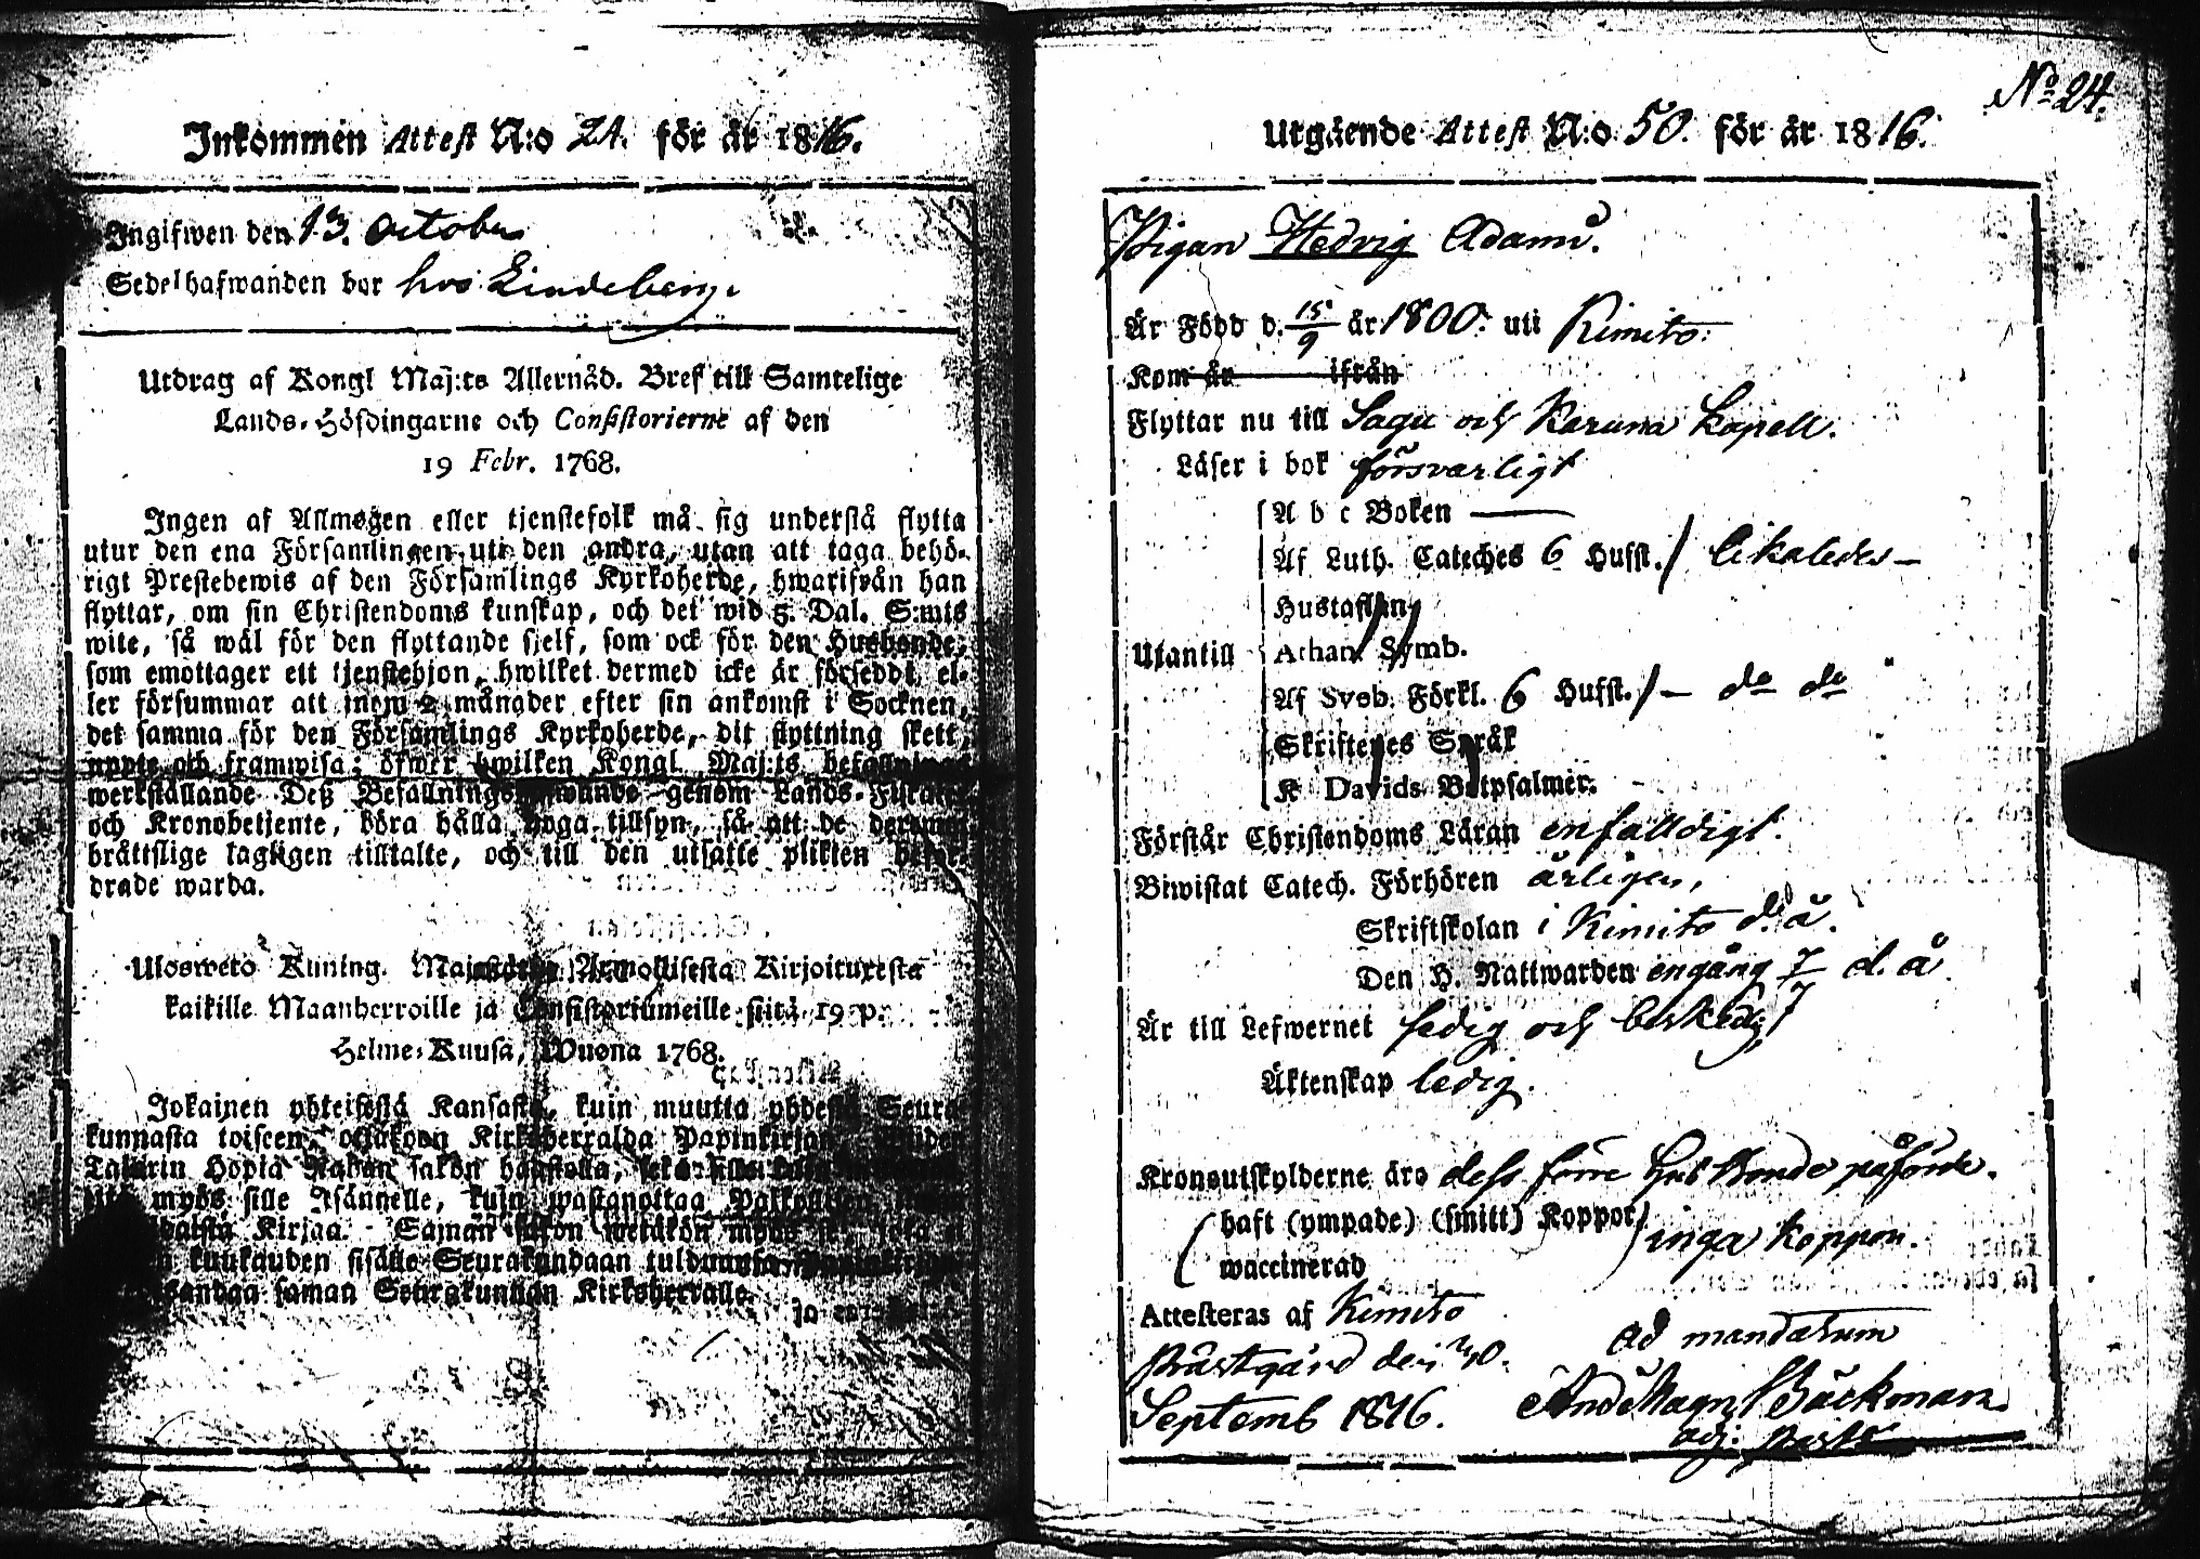 Inkommen Attest N:o 24. för år 1816.
Ingifwen den 13. October
Sedelhafwanden bor hos Lindeberg.
Utdrag af Kongl Maj:ts Allernåd. Bref till Samtelige
Lands-Höfdingarne och Consistorierne af den
19 Febr. 1768.
Ingen af Allmogen eller tjenstefolk må sig understå flytta
utur den ena Församlingen uti den andra, utan att taga behö-
rigt Prestebewis af den Församlings Kyrkoherde, hwarifrån han
flyttar, om sin Christendoms kunskap, och det wid 5. Dal. S:mts
wite, så wäl för den flyttande sjelf, som ock för den Husbonde,
som emottager ett tjenstehjon, hwilket dermed icke är förseddt, el-
ler försummar att inom 2 månader efter sin ankomst i Socknen,
det samma för den Församlings Kyrkoherde, dit flyttning skett,
uppte och framwisa; öfwer hwilken Kongl. Maj:ts befallnings
werkställande Deß Befallningshafwande genom Lands-Fiskaler
och Kronobetjente, böra hålla noga tillsyn, så att de
bråttslige lagligen tilltalte, och till den utsatte plikten befor-
drade warda.
Ulosweto Kuning. Majestätin Armollisesta Kirjoituxesta
kaikille Maanherroille ja Consistoriumeille siitä 19 p.
Helme-Kuusa, Wuona 1768.
Jokainen yhteisestä Kansasta, kuin muutta yhdestä Seura-
kunnasta toiseen, ottakoon Kirkkoherralda Papinkirjan
Talarin Hopia Rahan sakon haastolla,
myös sille Isännelle, kuin wastanottaa Palkollisen
Kirjaa. Saman sakon wetäkön myös se, joka ei
kuukauden sisälle Seurakundaan tulduansa
saman Seurakunnan Kirkoherralle.
No 24.
Utgående Attest N:o 50. för år 1816.
Pigan Hedvig Adams.
Är Född d. 15/9 år 1800. uti Kimito.
Kom år ifrån
Flyttar nu till Sagu och Karuna Capell.
Läser i bok försvarligt
A b c Boken
Af Luth. Cateches 6 Hufst. likaledes
Hustaflan
Utantill Athan. Symb.
Af Sveb. Förkl. 6 Hufst. do do
Skriftenes Språk
K Davids Botpsalmer.
Förstår Christendoms Läran enfalldigt.
Biwistat Catech. Förhören årligen,
Skriftskolan i Kimito d. å.
Den H. Nattwarden engång 7/7 d. å.
Är till Lefwernet sedig och beskedlig
Äktenskap ledig.
Kronoutskylderne äro dess förre Husbonde påförde.
haft (ympade) (smitt) Koppor inga koppor.
waccinerad
Attesteras af Kimito
Prästgård den 30.
Septemb 1816.
Ad mandatum
And Magn Bäckman
adj: past: